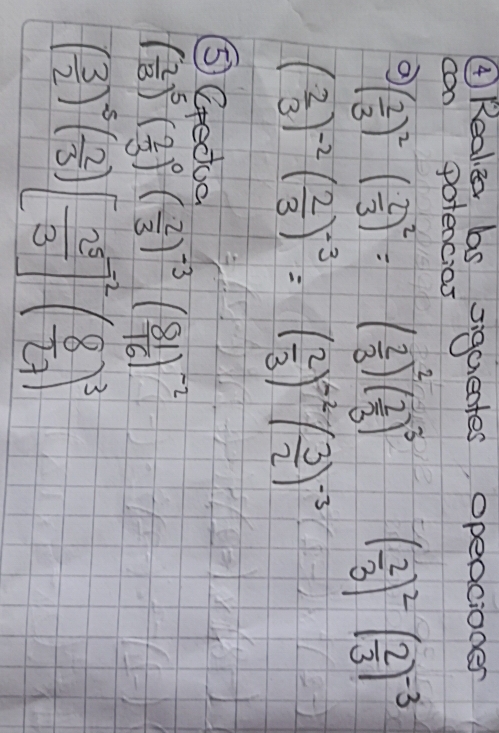 ④ Realizar las siguientes operaciones
con potencias
a) (2/3)² (2/3)² = (2/3)² (2/3)³ (2/3)² (2/3)⁻³
(2/3)⁻² (2/3)⁻³ = (2/3)⁻² (3/2)⁻³
⑤ Efectua
(2/3)⁵ (2/3)⁰ (2/3)⁻³ (81/16)⁻²
(3/2)⁻⁵ (2/3) [2⁵/3]⁻² (8/27)³